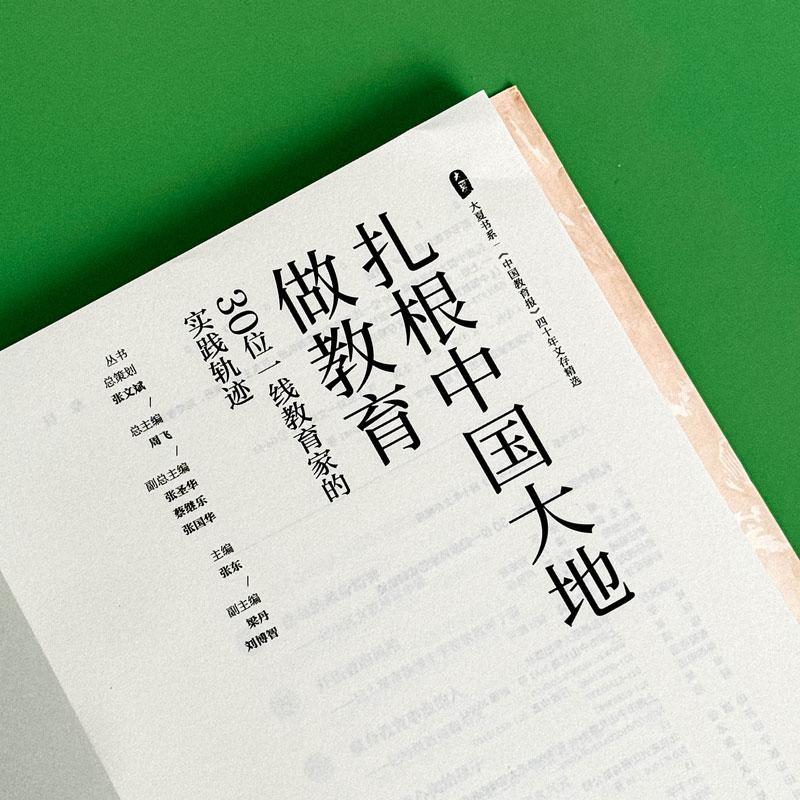 大夏
大夏书系｜《中国教育报》四十年文存精选
扎根中国大地
做教育
30位一线教育家的
实践轨迹
丛书
总策划
张文斌
/
总主编
周飞
/
副总主编
张圣华
蔡继乐
张国华
主编
张东
/
副主编
梁丹
刘博智